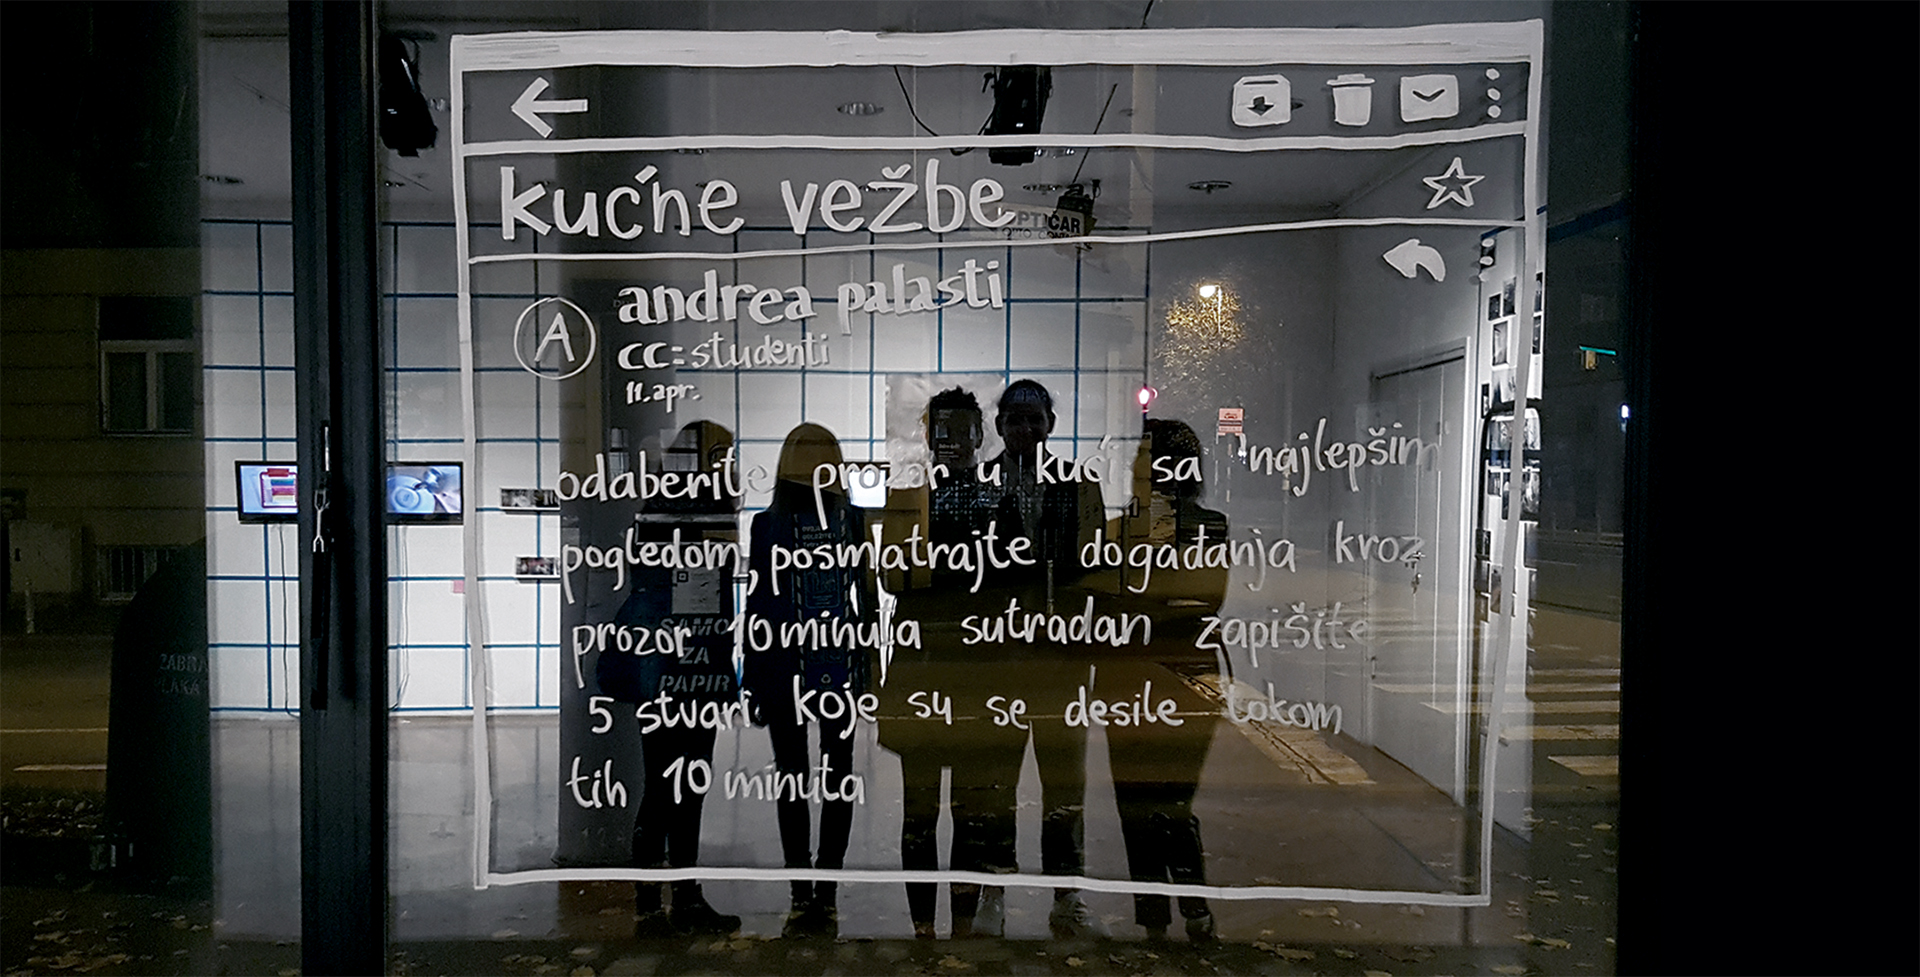 kućne vežbe
OPTIČAR
andrea palasti
A
cc: studenti
11. apr.
odaberite prozor u kući sa najlepšim
pogledom, posmatrajte događanja kroz
prozor 10 minuta sutradan zapišite
5 stvari koje su se desile tokom
tih 10 minuta
SAMO
ZA
PAPIR